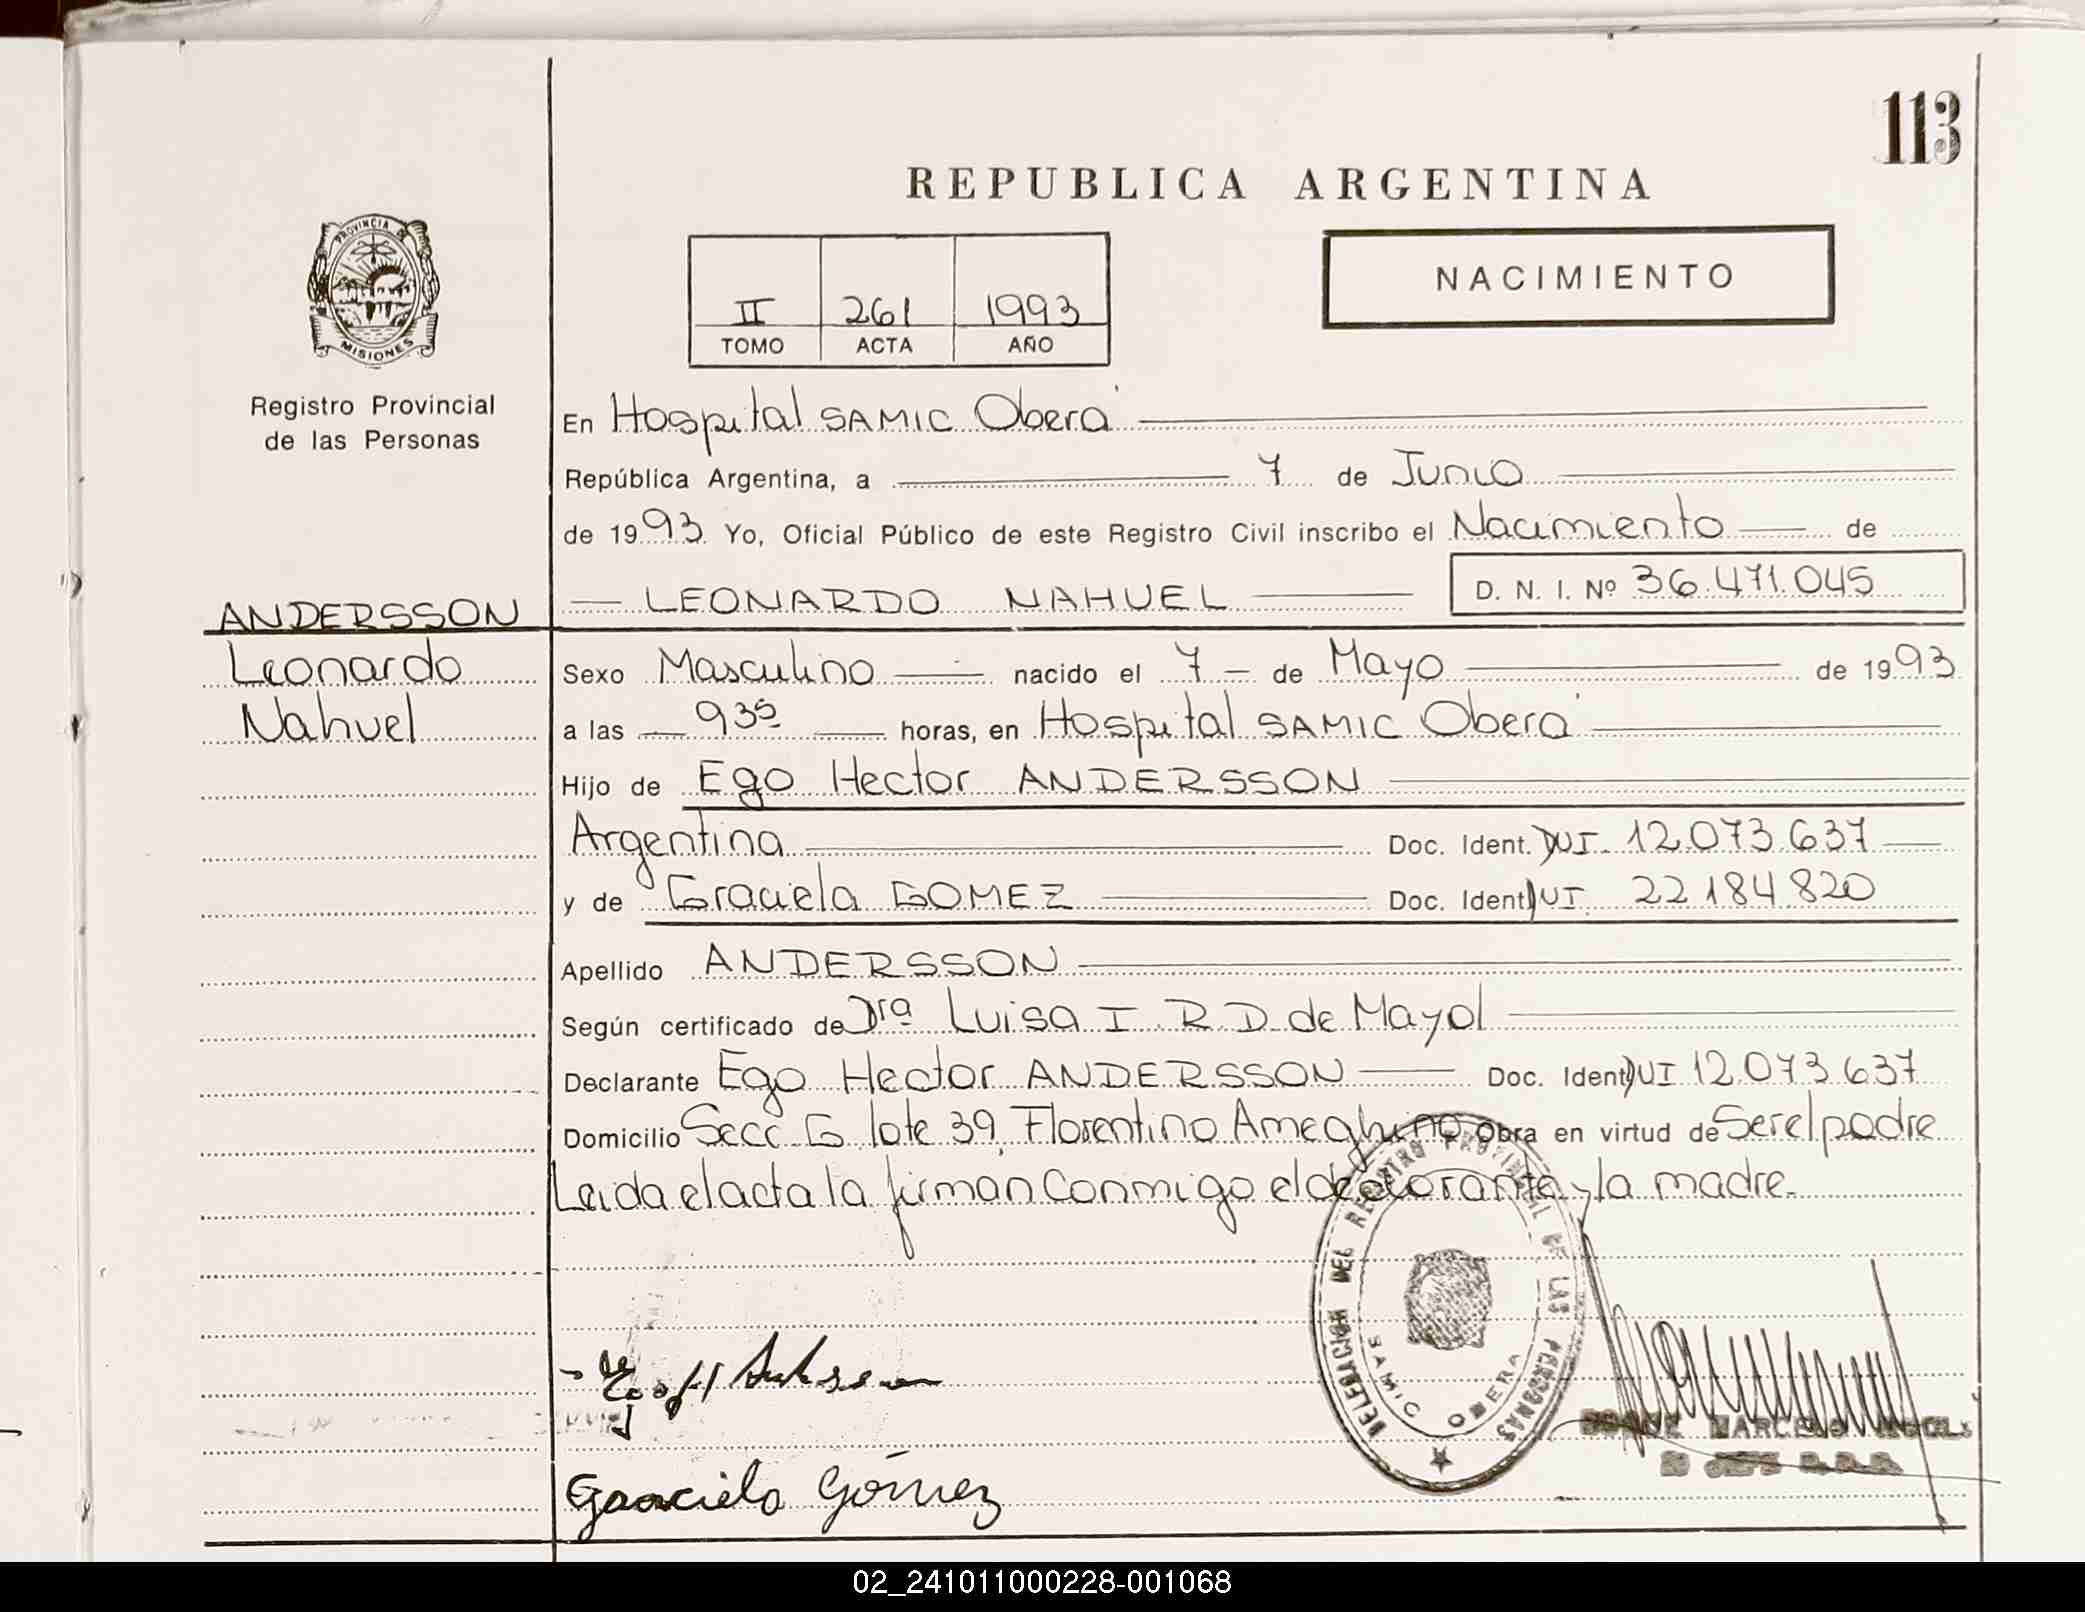 113
REPUBLICA ARGENTINA
PROVINCIA DE
MISIONES
Registro Provincial
de las Personas
II 261 1993
TOMO ACTA AÑO
NACIMIENTO
En Hospital SAMIC Oberá
República Argentina, a 7 de Junio
de 1993 Yo, Oficial Público de este Registro Civil inscribo el Nacimiento de
LEONARDO NAHUEL D. N. I. Nº 36.471.045
ANDERSSON
Leonardo
Nahuel
Sexo Masculino nacido el 7 de Mayo de 1993
a las 935 horas, en Hospital SAMIC Oberá
Hijo de Ego Hector ANDERSSON
Argentina Doc. Ident. DNI. 12.073.637
y de Graciela GOMEZ Doc. Ident DNI. 22.184.820
Apellido ANDERSSON
Según certificado de Dra Luisa I. R. D. de Mayol
Declarante Ego Hector ANDERSSON Doc. Ident DNI 12.073.637
Domicilio Secc G lote 39, Florentino Ameghino Obra en virtud de Ser el padre
Leida el acta la firman Conmigo el declarante y la madre.
DELEGACION DEL REGISTRO PROVINCIAL DE LAS PERSONAS
SAMIC OBERA
Graciela Gómez
02_241011000228-001068